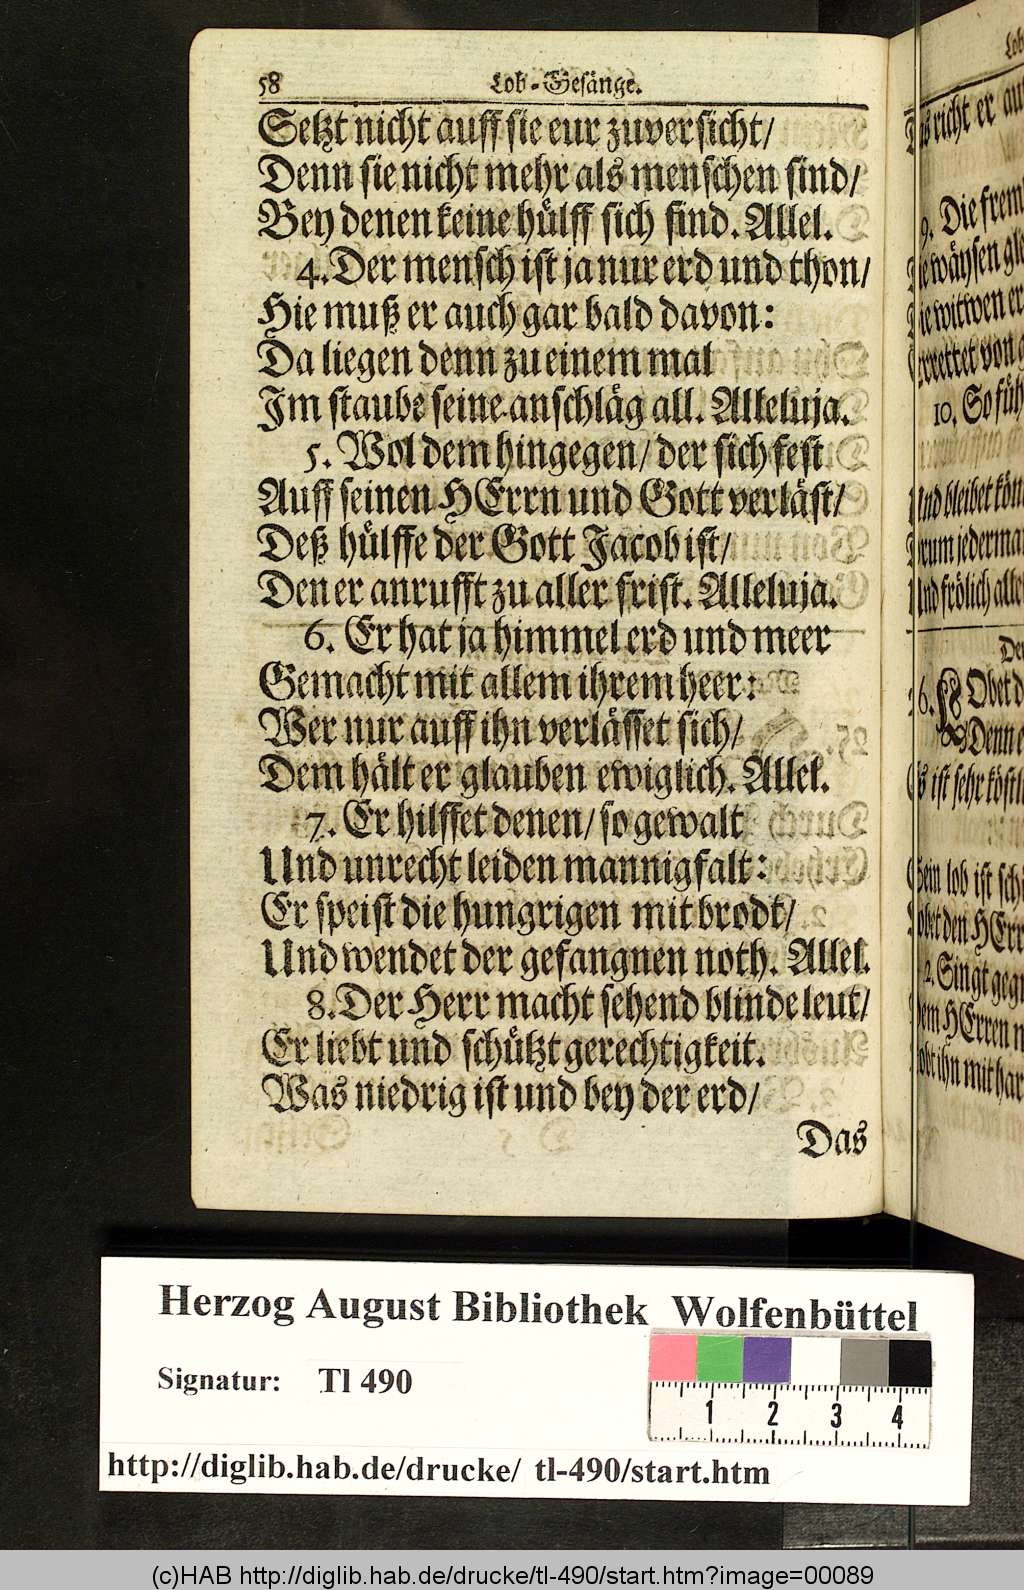 58 Lob-Gesänge.
Setzt nicht auff sie eur zuversicht/
Denn sie nicht mehr als menschen sind/
Bey denen keine hülff sich find. Allel.
4. Der mensch ist ja nur erd und thon/
Hie muß er auch gar bald davon:
Da liegen denn zu einem mal
Im staube seine anschläg all. Alleluja.
5. Wol dem hingegen/ der sich fest
Auff seinen HErrn und Gott verläst/
Deß hülffe der Gott Jacob ist/
Den er anrufft zu aller frist. Alleluja.
6. Er hat ja himmel erd und meer
Gemacht mit allem ihrem heer:
Wer nur auff ihn verlässet sich/
Dem hält er glauben ewiglich. Allel.
7. Er hilffet denen/ so gewalt
Und unrecht leiden mannigfalt:
Er speist die hungrigen mit brodt/
Und wendet der gefangnen noth. Allel.
8. Der Herr macht sehend blinde leut/
Er liebt und schützt gerechtigkeit.
Was niedrig ist und bey der erd/
Das
richt er
9. Die
wäysen
witwen
von
10. So
bleibet
jederma
frölich
6. LObet
Denn
ist sehr
lob ist
den
2. Singt
HErren
ihn mit har
Herzog August Bibliothek Wolfenbüttel
Signatur: Tl 490
1 2 3 4
http://diglib.hab.de/drucke/ tl-490/start.htm
(c)HAB http://diglib.hab.de/drucke/tl-490/start.htm?image=00089